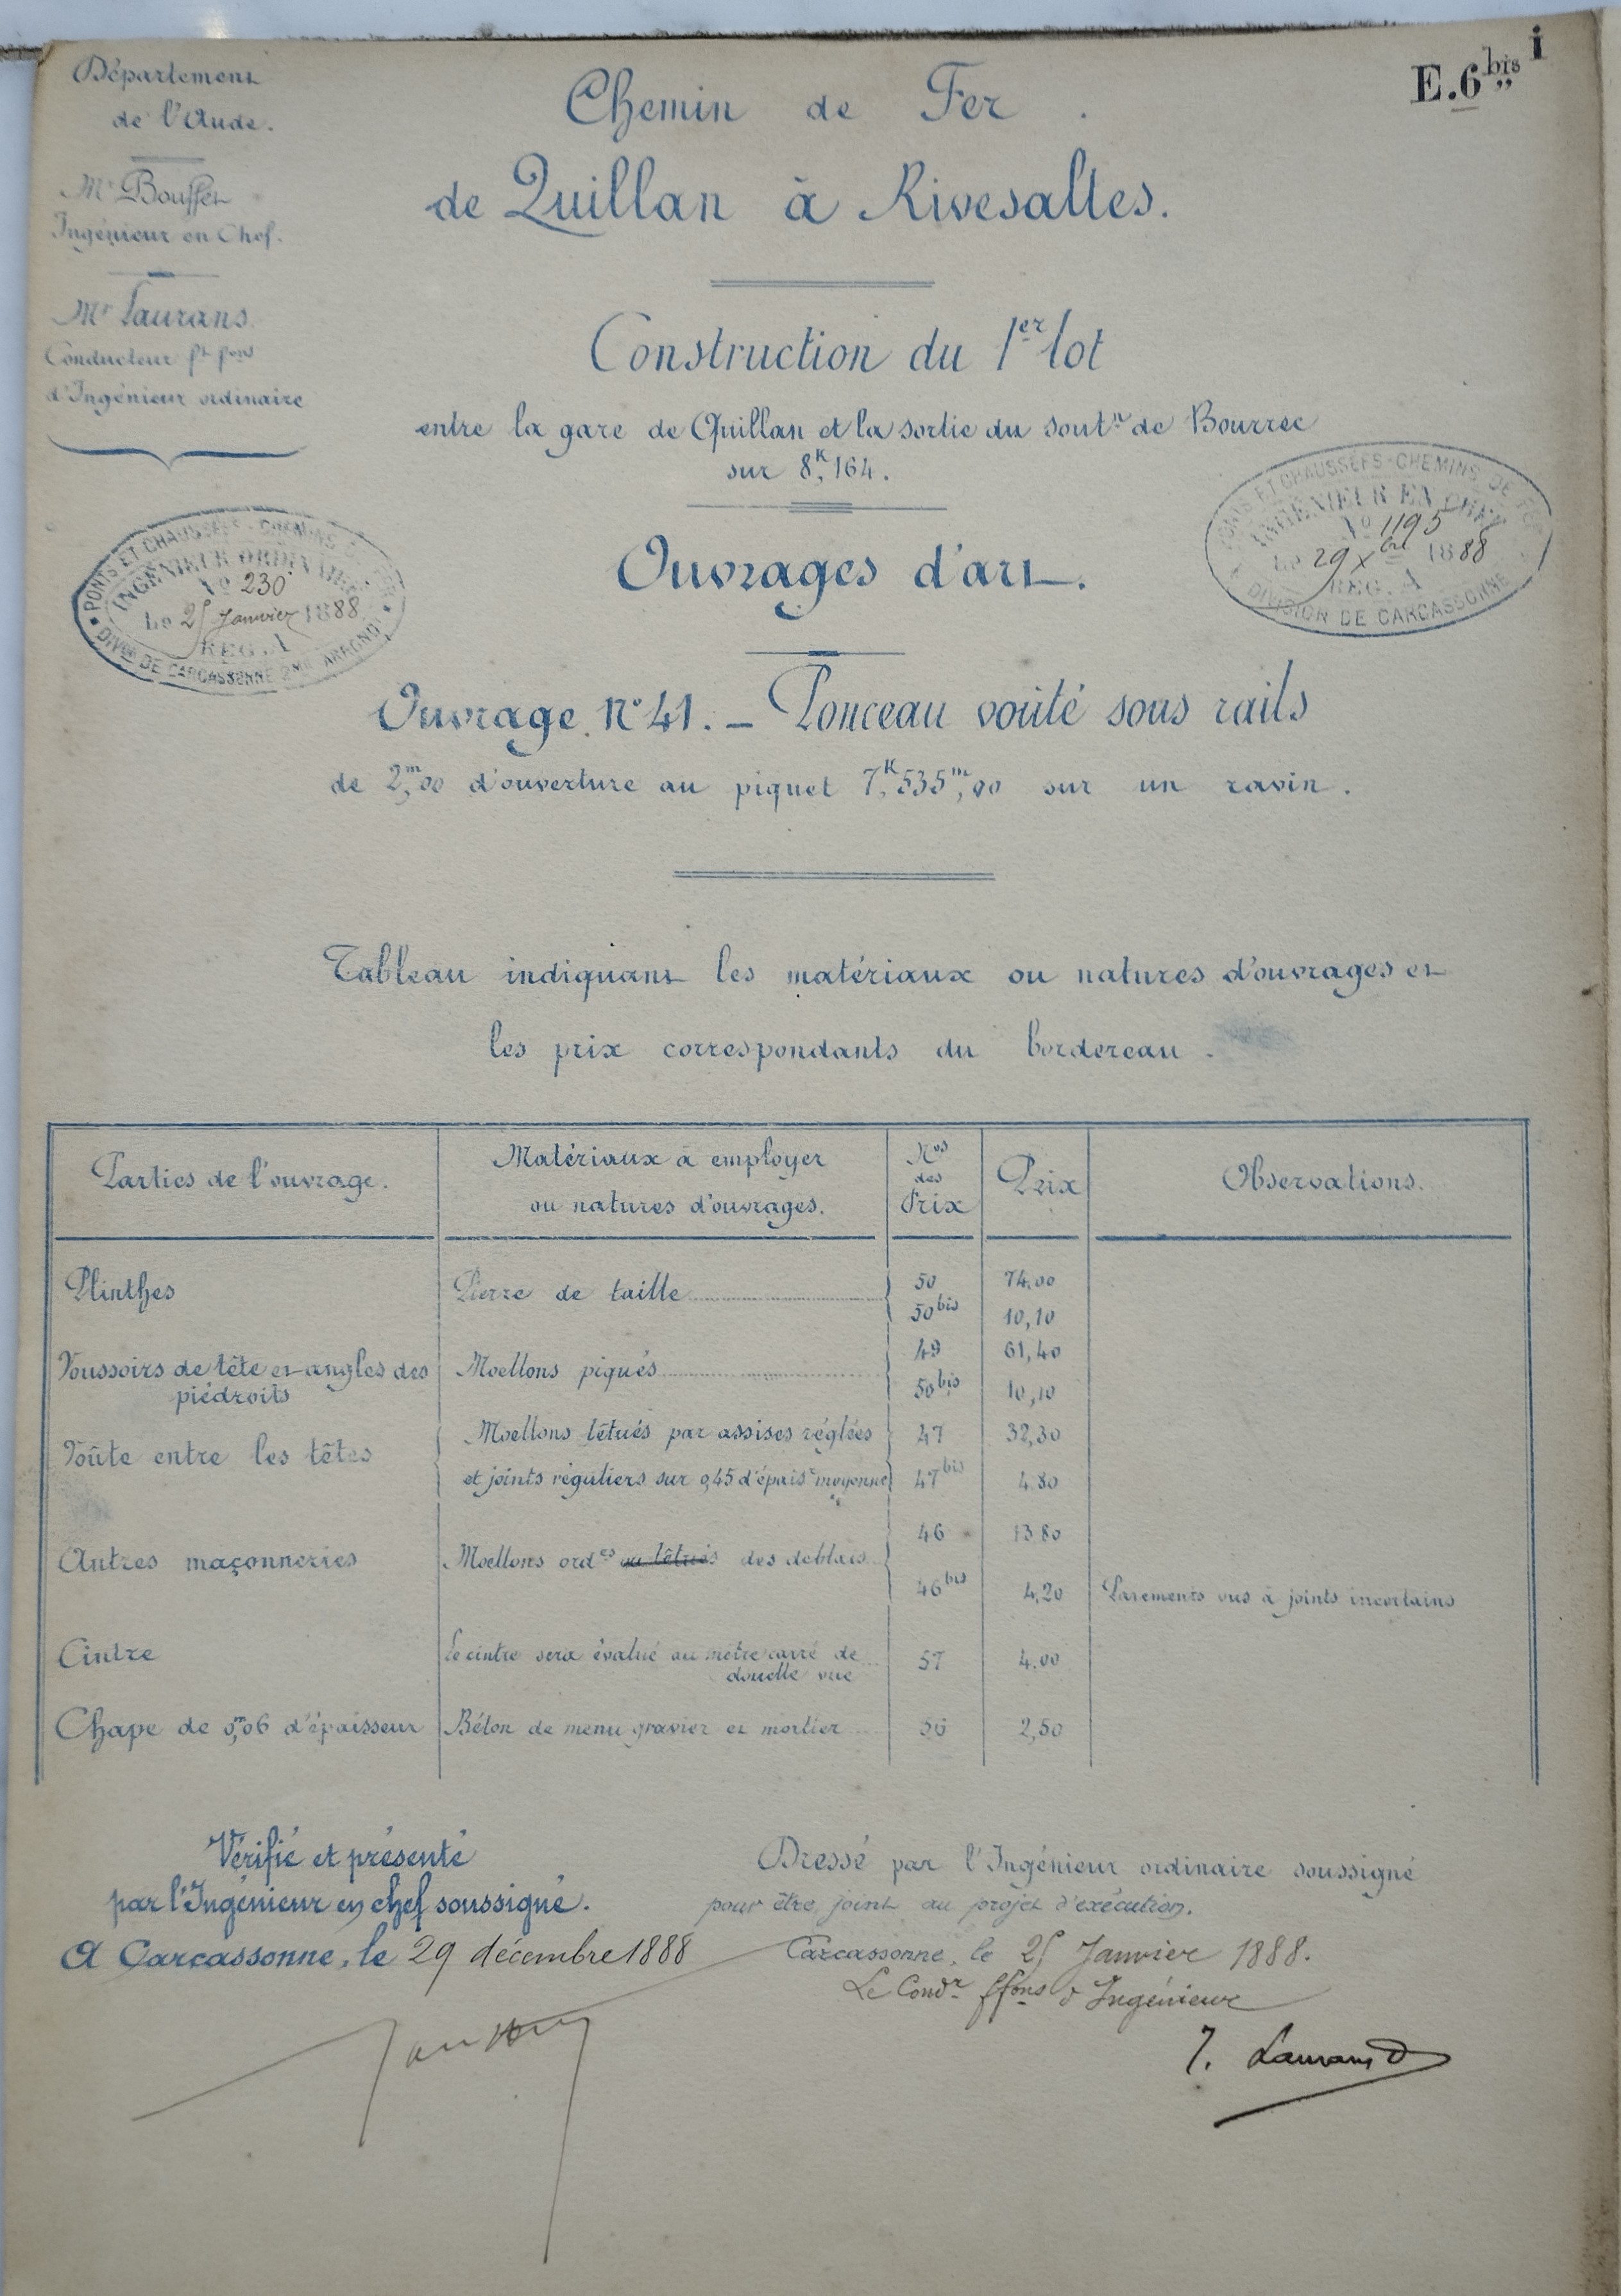 E.6 bis i
Département
de l'Aude.
Mr Bouffet
Ingénieur en Chef.
Mr Laurans
Conducteur ft fons
d'Ingénieur ordinaire
Chemin de Fer
de Quillan à Rivesaltes.
Construction du 1er lot
entre la gare de Quillan et la sortie du soutn de Bourrec
sur 8K,164.
PONTS ET CHAUSSÉES - CHEMINS DE FER
INGÉNIEUR ORDINAIRE
No 230
Le 25 Janvier 1888
REG. A
DIVon DE CARCASSONNE
PONTS ET CHAUSSÉES - CHEMINS DE FER
INGÉNIEUR EN CHEF
No 1195
Le 29 Xbre 1888
REG. A
DIVISION DE CARCASSONNE
Ouvrages d'art.
Ouvrage N°41. – Ponceau voûté sous rails
de 2m,00 d'ouverture au piquet 7K,535m,00 sur un ravin.
Tableau indiquant les matériaux ou natures d'ouvrages et
les prix correspondants du bordereau.
Parties de l'ouvrage. Matériaux à employer ou natures d'ouvrages. Nos des Prix Prix Observations.
Plinthes Pierre de taille 50 74,00
50bis 10,10
Voussoirs de tête et angles des piédroits Moellons piqués 49 61,40
50bis 10,10
Voûte entre les têtes Moellons têtués par assises réglées 47 32,30
et joints réguliers sur 0,45 d'épaisr moyenne 47bis 4.80
46 13.80
Autres maçonneries Moellons ordes ou têtués des déblais
46bis 4,20 Parements vus à joints incertains
Cintre Le cintre sera évalué au mètre carré de douelle vue 57 4.00
Chape de 0m,06 d'épaisseur Béton de menu gravier et mortier 56 2,50
Vérifié et présenté
par l'Ingénieur en chef soussigné.
A Carcassonne, le 29 décembre 1888
Dressé par l'Ingénieur ordinaire soussigné
pour être joint au projet d'exécution.
Carcassonne, le 25 Janvier 1888.
Le Condr ffons d'Ingénieur
J. Laurans